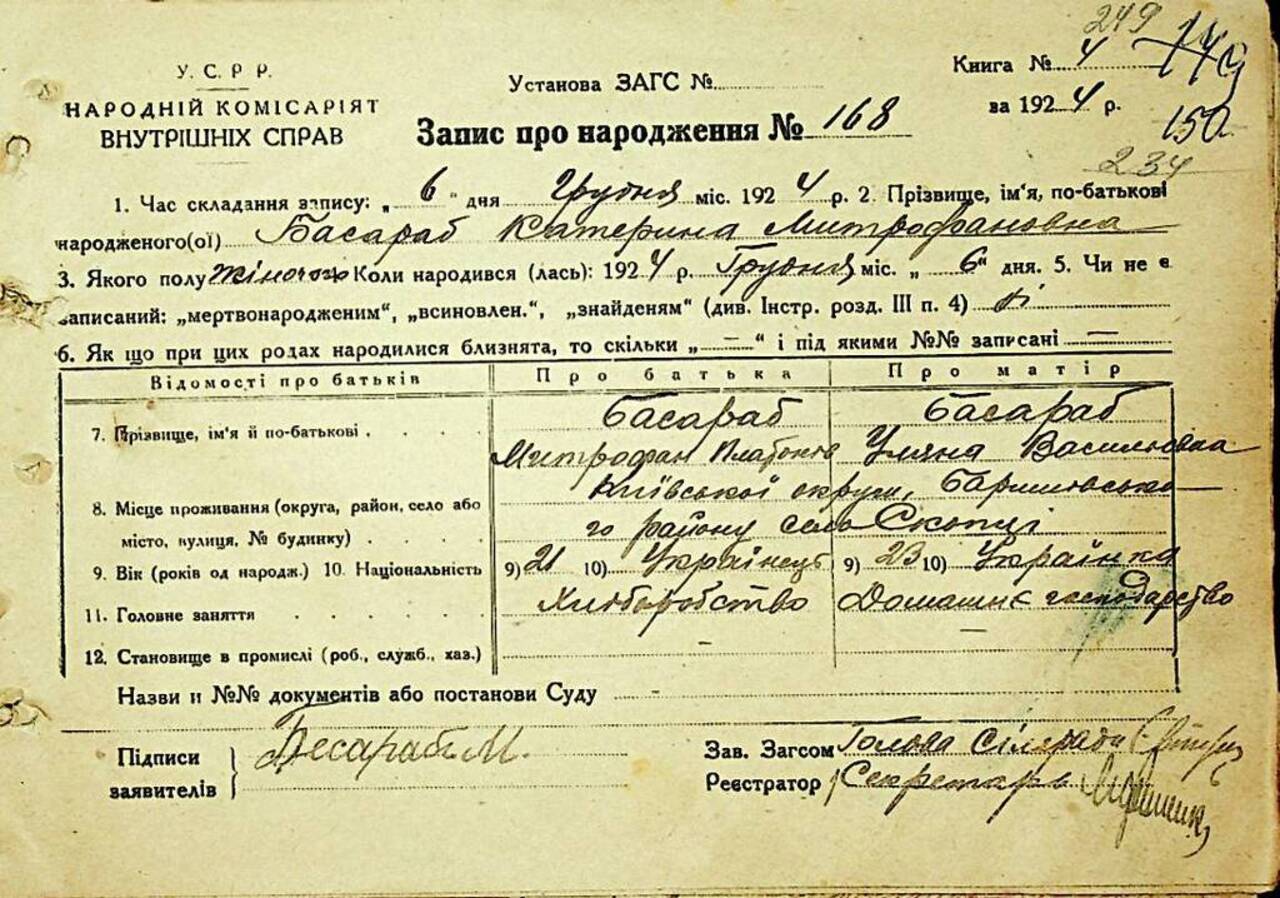 249
149
У. С. Р Р.
НАРОДНІЙ КОМІСАРІЯТ
ВНУТРІШНІХ СПРАВ
Установа ЗАГС №
Книга № 4
за 1924 р.
Запис про народження № 168
150
234
1. Час складання запису: „ 6 " дня Грудня міс. 1924 р. 2. Прізвище, ім'я, по-батькові
народженого(ої) Басараб Катерина Митрофановна
3. Якого полу жіночого Коли народився (лась): 1924 р. Грудня міс. „ 6 " дня. 5. Чи не є
записаний: „мертвонародженим", „всиновлен.", „знайденям" (див. Інстр. розд. III п. 4) Ні
6. Як що при цих родах народилися близнята, то скільки „ — " і під якими №№ записані —
Відомості про батьків Про батька Про матір
7. Прізвище, ім'я й по-батькові Басараб Басараб
Митрофан Платонов Уляна Василювна
8. Місце проживання (округа, район, село або Київської округи, Баришовсько
місто, вулиця, № будинку) го району село Скопці
9. Вік (років од народж.) 10. Національність 9) 21 10) Українець 9) 23 10) Українка
11. Головне заняття Хліборобство Домашнє господарство
12. Становище в промислі (роб., служб., хаз.) - —
Назви и №№ документів або постанови Суду -
Підписи
заявителів
Бесараб М.
Зав. Загсом Голова Сілеради
Реєстратор Секретарь